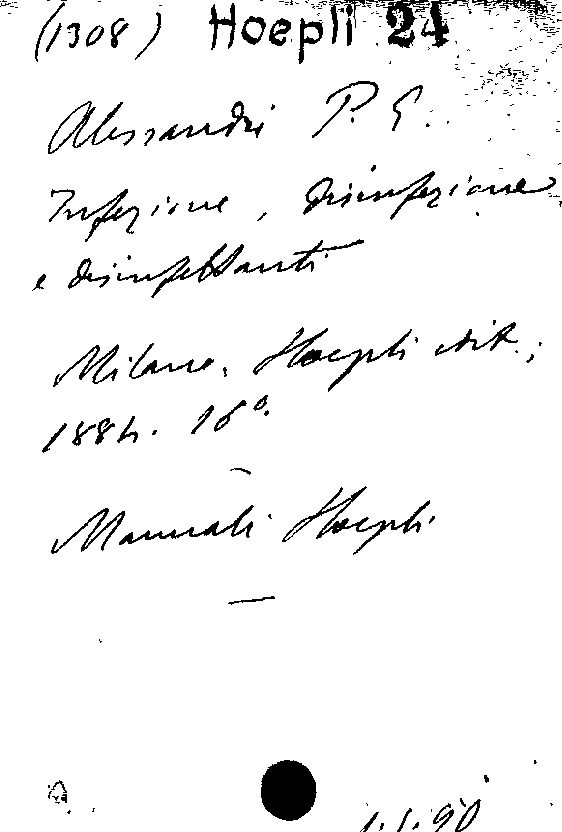 (1308) Hoepli 24
Alessandri P. E.
Infezione, disinfezione
e disinfettanti
Milano, Hoepli edit.;
1884. 16º.
Manuali Hoepli
1.1.90